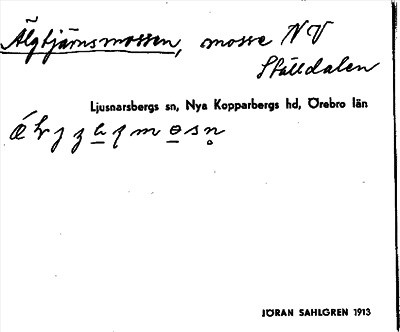 Älgtjärnsmossen, mosse NV
Ställdalen
Ljusnarsbergs sn, Nya Kopparbergs hd, Örebro län
JÖRAN SAHLGREN 1913